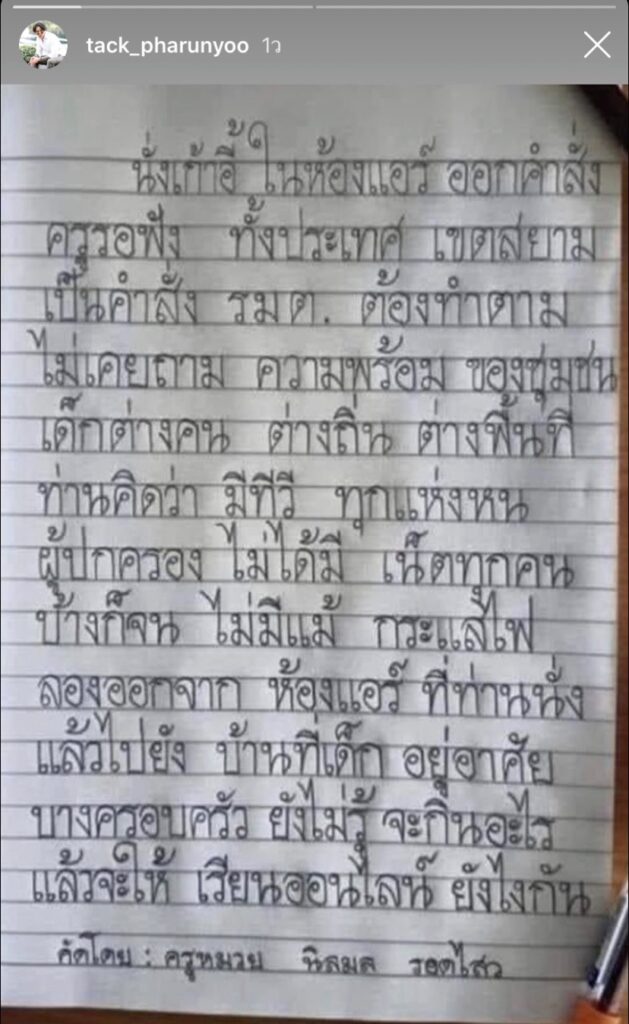 tack_pharunyoo 1ว
นั่งเก้าอี้ ในห้องแอร์ ออกคำสั่ง
ครูรอฟัง ทั้งประเทศ เขตสยาม
เป็นคำสั่ง รมต. ต้องทำตาม
ไม่เคยถาม ความพร้อม ของชุมชน
เด็กต่างคน ต่างถิ่น ต่างพื้นที่
ท่านคิดว่า มีทีวี ทุกแห่งหน
ผู้ปกครอง ไม่ได้มี เน็ตทุกคน
บ้างก็จน ไม่มีแม้ กระแสไฟ
ลองออกจาก ห้องแอร์ ที่ท่านนั่ง
แล้วไปยัง บ้านที่เด็ก อยู่อาศัย
บางครอบครัว ยังไม่รู้ จะกินอะไร
แล้วจะให้ เรียนออนไลน์ ยังไงกัน
คัดโดย : ครูหมวย นิลมล รอดไสว